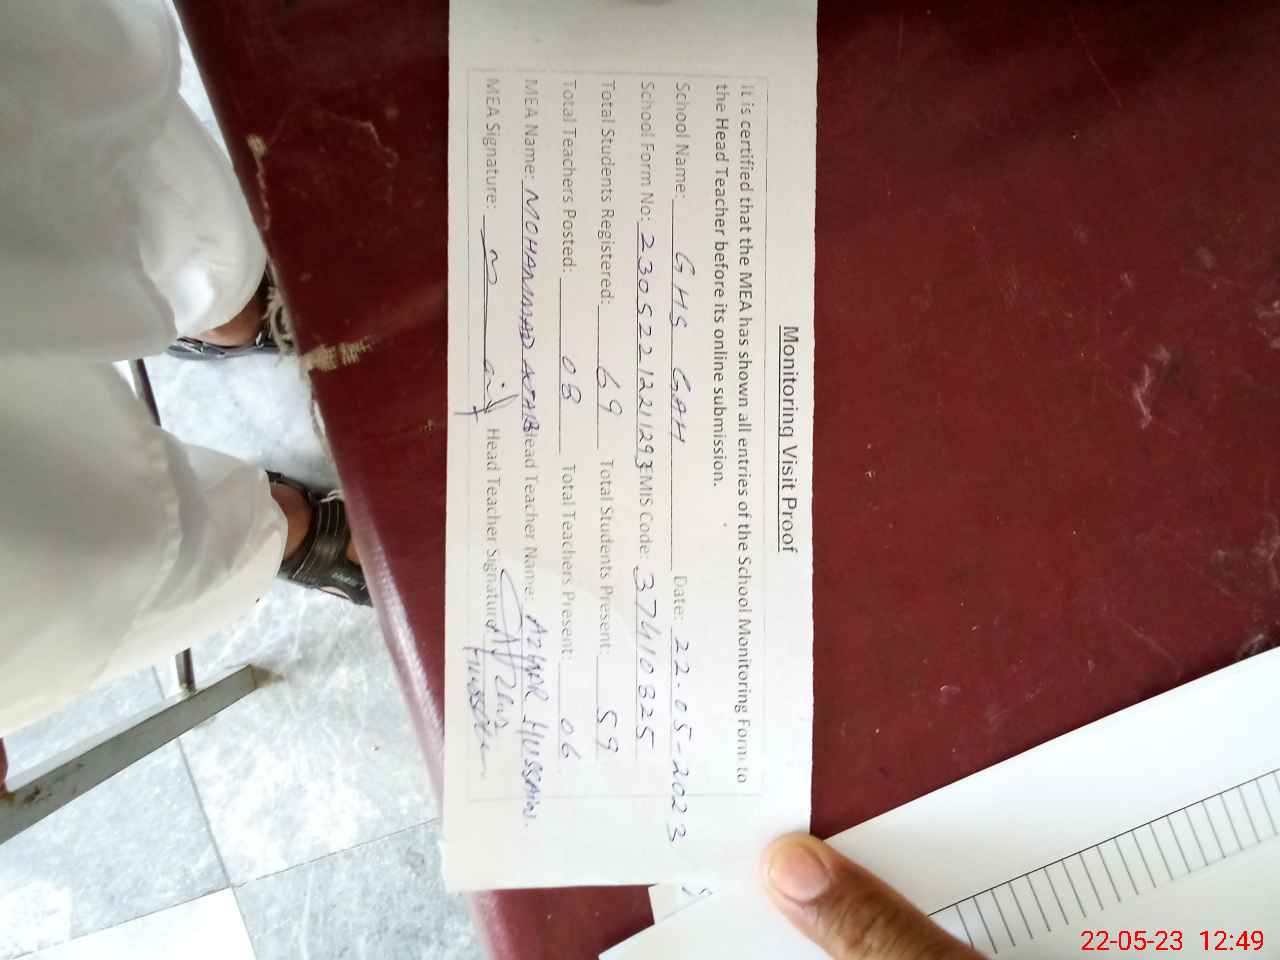 Monitoring Visit Proof
It is certified that the MEA has shown all entries of the School Monitoring Form to
the Head Teacher before its online submission.
School Name: GHS GAH Date: 22-05-2023
School Form No: 23052212211293 EMIS Code: 37410825
Total Students Registered: 69 Total Students Present: 59
Total Teachers Posted: 08 Total Teachers Present: 06
MEA Name: MOHAMMAD AFTAB Head Teacher Name: AZHAR HUSSAIN.
MEA Signature: Head Teacher Signature Azhar
Hussain
22-05-23 12:49